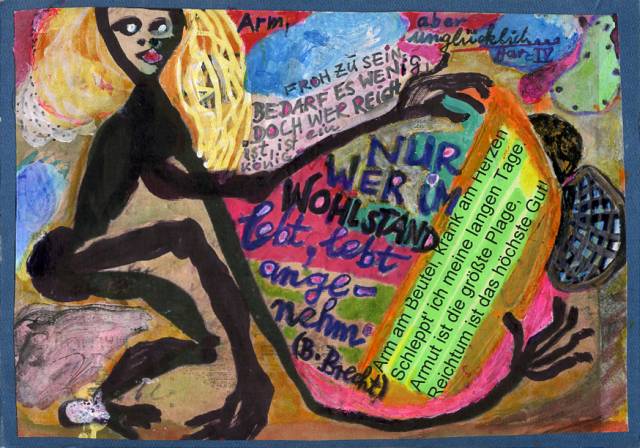 Arm,
aber
unglücklich
Harz IV
FROH ZU SEIN,
BEDARF ES WENIG
DOCH WER REICH
ist, ist ein
König
NUR
WER IM
WOHLSTAND
lebt, lebt
ange-
nehm
(B. Brecht)
Arm am Beutel, Krank am Herzen
Schleppt' ich meine langen Tage.
Armut ist die größte Plage,
Reichtum ist das höchste Gut!